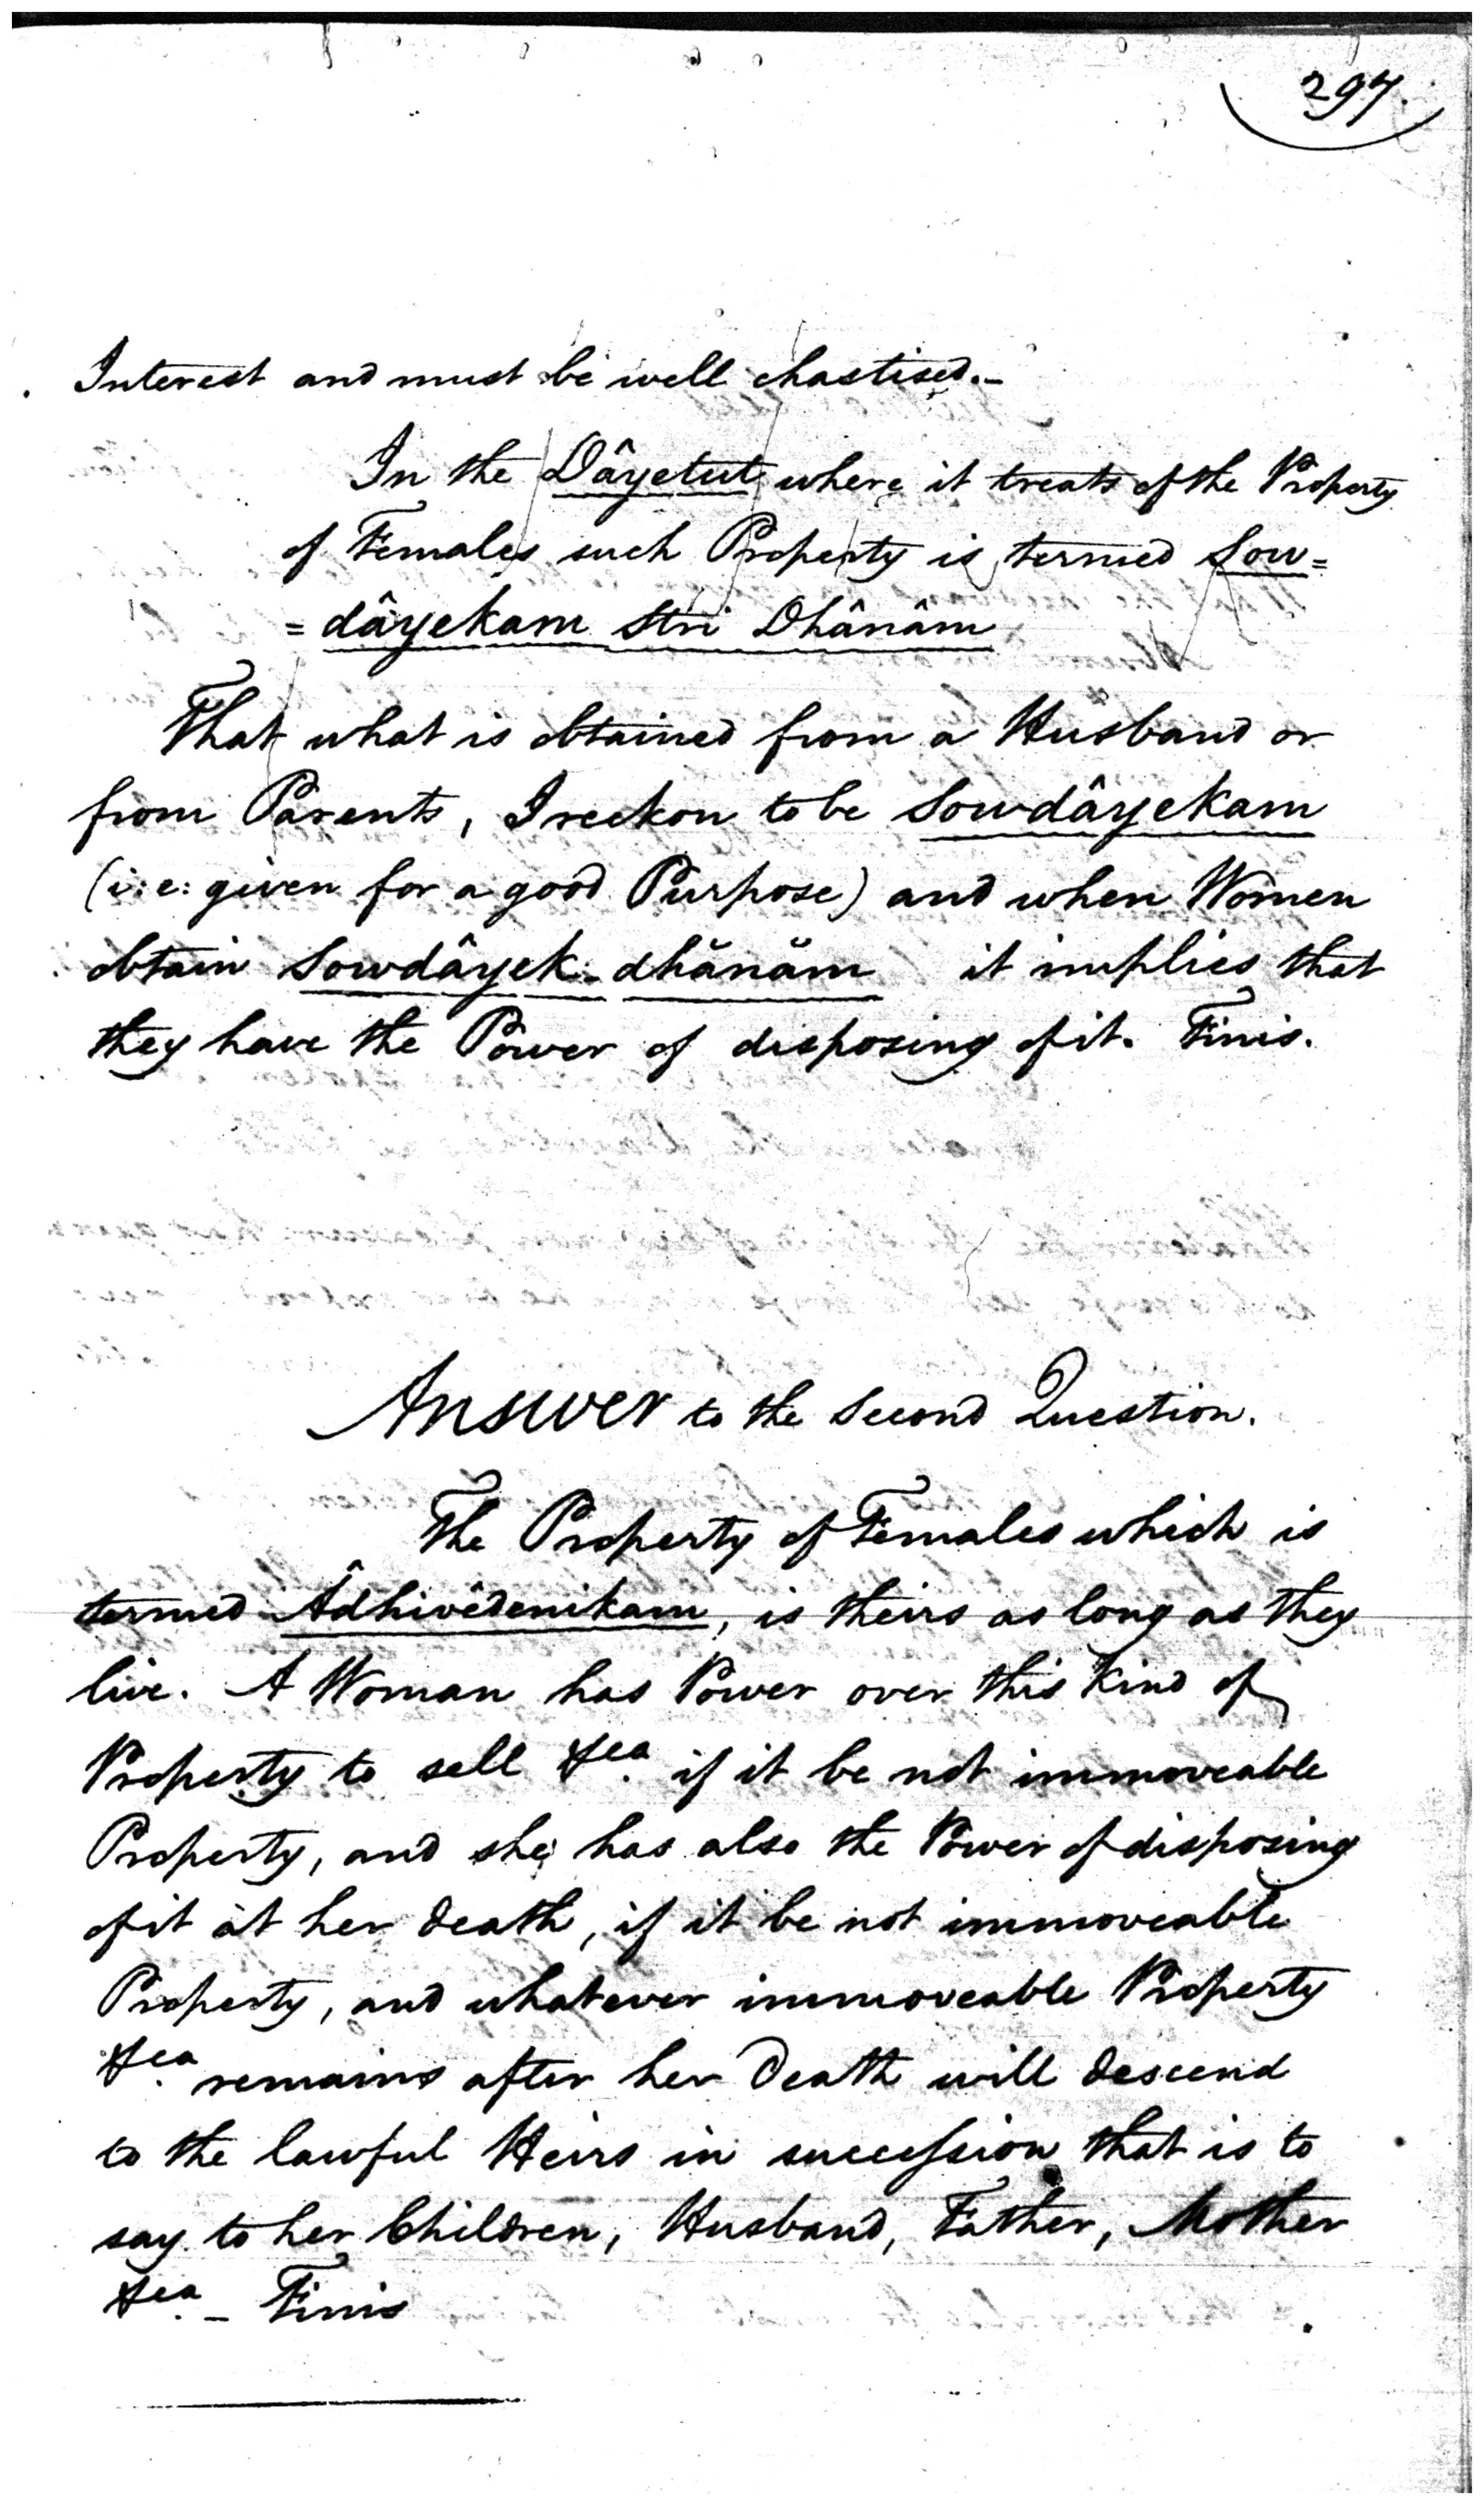 297.
Interest and must be well chastised.-
In the Dâyetut where it treats of the Property
of Females such Property is termed Sow=
=dâyekam Stri Dhânâm
That what is obtained from a Husband or
from Parents, I reckon to be Sowdâyekam
(i:e: given for a good Purpose) and when Women
obtain Sowdâyek-dhănăm it implies that
they have the Power of disposing of it. Finis.
Answer to the Second Question.
The Property of Females which is
termed Âdhivêdenikam, is theirs as long as they
live. A Woman has Power over this Kind of
Property to sell &ca. if it be not immoveable
Property, and she has also the Power of disposing
of it at her death, if it be not immoveable
Property, and whatever immoveable Property
&ca. remains after her Death will descend
to the lawful Heirs in succession that is to
say to her Children, Husband, Father, Mother
&ca. - Finis